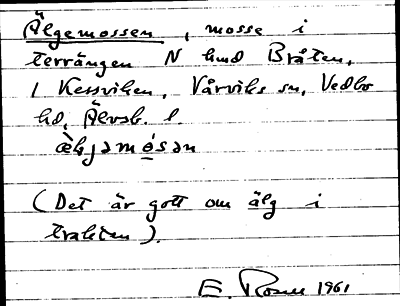 Älgemossen, mosse i
terrängen N hmd Bråten,
1 Kessviken, Vårviks sn, Vedbo
hd, Älvsb. l.
(Det är gott om älg i
trakten).
E. Rosell 1961